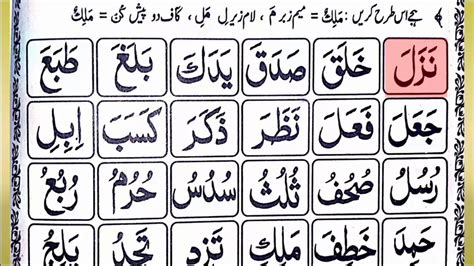 ہجے اس طرح کریں: مَلِكٌ = میم زبر مَ ، لام زیر لِ مَلِ ، کاف دو پیش كٌ = مَلِكٌ
نَزَلَ خَلَقَ صَدَقَ يَدَكَ بَلَغَ طَبَعَ
جَعَلَ فَعَلَ نَظَرَ ذَكَرَ كَسَبَ اِبِلِ
رُسُلُ صُحُفُ ثُلُثُ سُدُسُ حُرُمُ رُبُعُ
حَمِدَ خَطِفَ مَلِكِ تَزِدِ تَجِدُ بَلَجُ